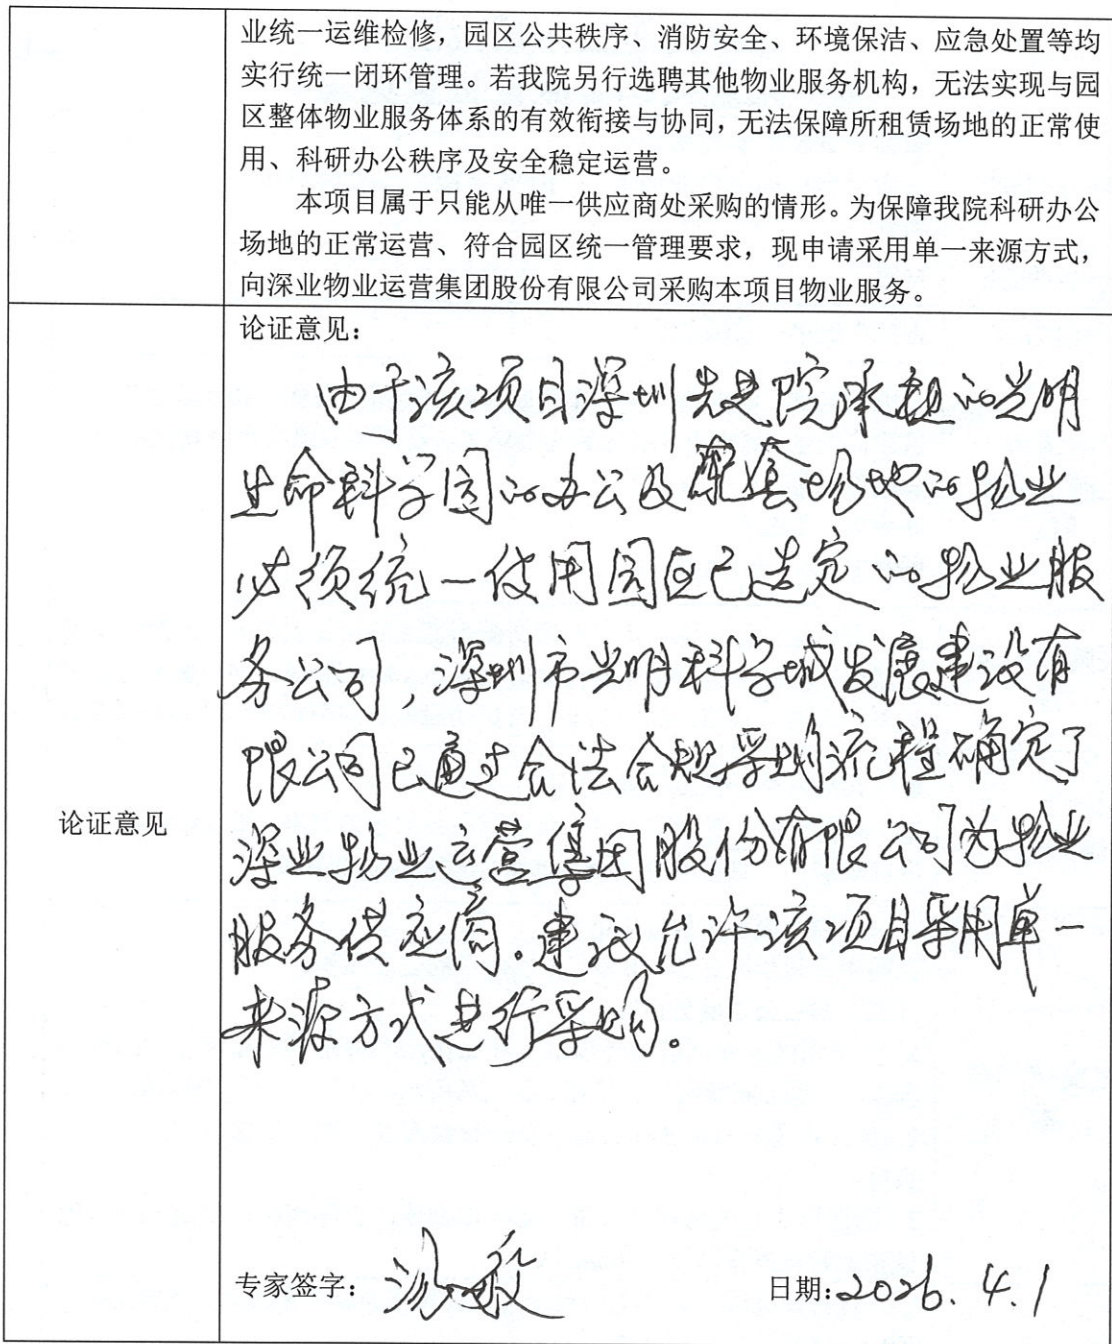 业统一运维检修，园区公共秩序、消防安全、环境保洁、应急处置等均
实行统一闭环管理。若我院另行选聘其他物业服务机构，无法实现与园
区整体物业服务体系的有效衔接与协同，无法保障所租赁场地的正常使
用、科研办公秩序及安全稳定运营。
本项目属于只能从唯一供应商处采购的情形。为保障我院科研办公
场地的正常运营、符合园区统一管理要求，现申请采用单一来源方式，
向深业物业运营集团股份有限公司采购本项目物业服务。
论证意见
论证意见：
由于该项目深圳先进院承租的光明
生命科学园的办公及配套场地的物业
必须统一使用园区已选定的物业服
务公司，深圳市光明科学城发展建设有
限公司已通过合法合规采购流程确定了
深业物业运营集团股份有限公司为物业
服务供应商。建议允许该项目采用单一
来源方式进行采购。
专家签字：
日期：2026.4.1